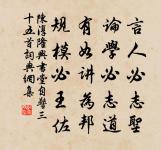 言人必志聖
論學必志道
有如講為邦
規模必王佐
陳淳隆興書堂自警三
十五首詞典網集